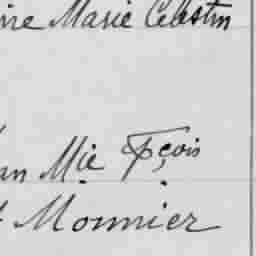 ire Marie Celestin
an Mie Fçois
Monnier